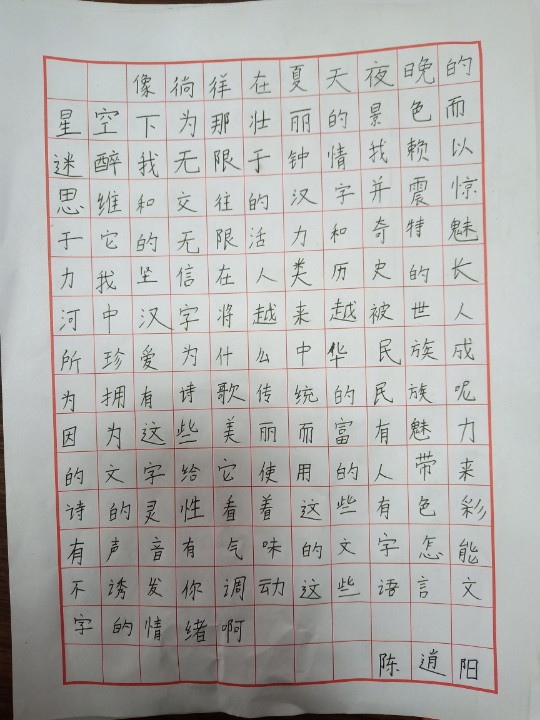 像徜徉在夏天夜晚的
星空下为那壮丽的景色而
迷醉我无限于钟情我赖以
思维和交往的汉字并震惊
于它的无限活力和奇特魅
力我坚信在人类历史的长
河中汉字将越来越被世人
所珍爱为什么中华民族成
为拥有诗歌传统的民族呢
因为这些美丽而富有魅力
的文字给它使用的人带来
诗的灵性看着这些有色彩
有声音有气味的文字怎能
不诱发你调动这些语言文
字的情绪啊
陈逍阳